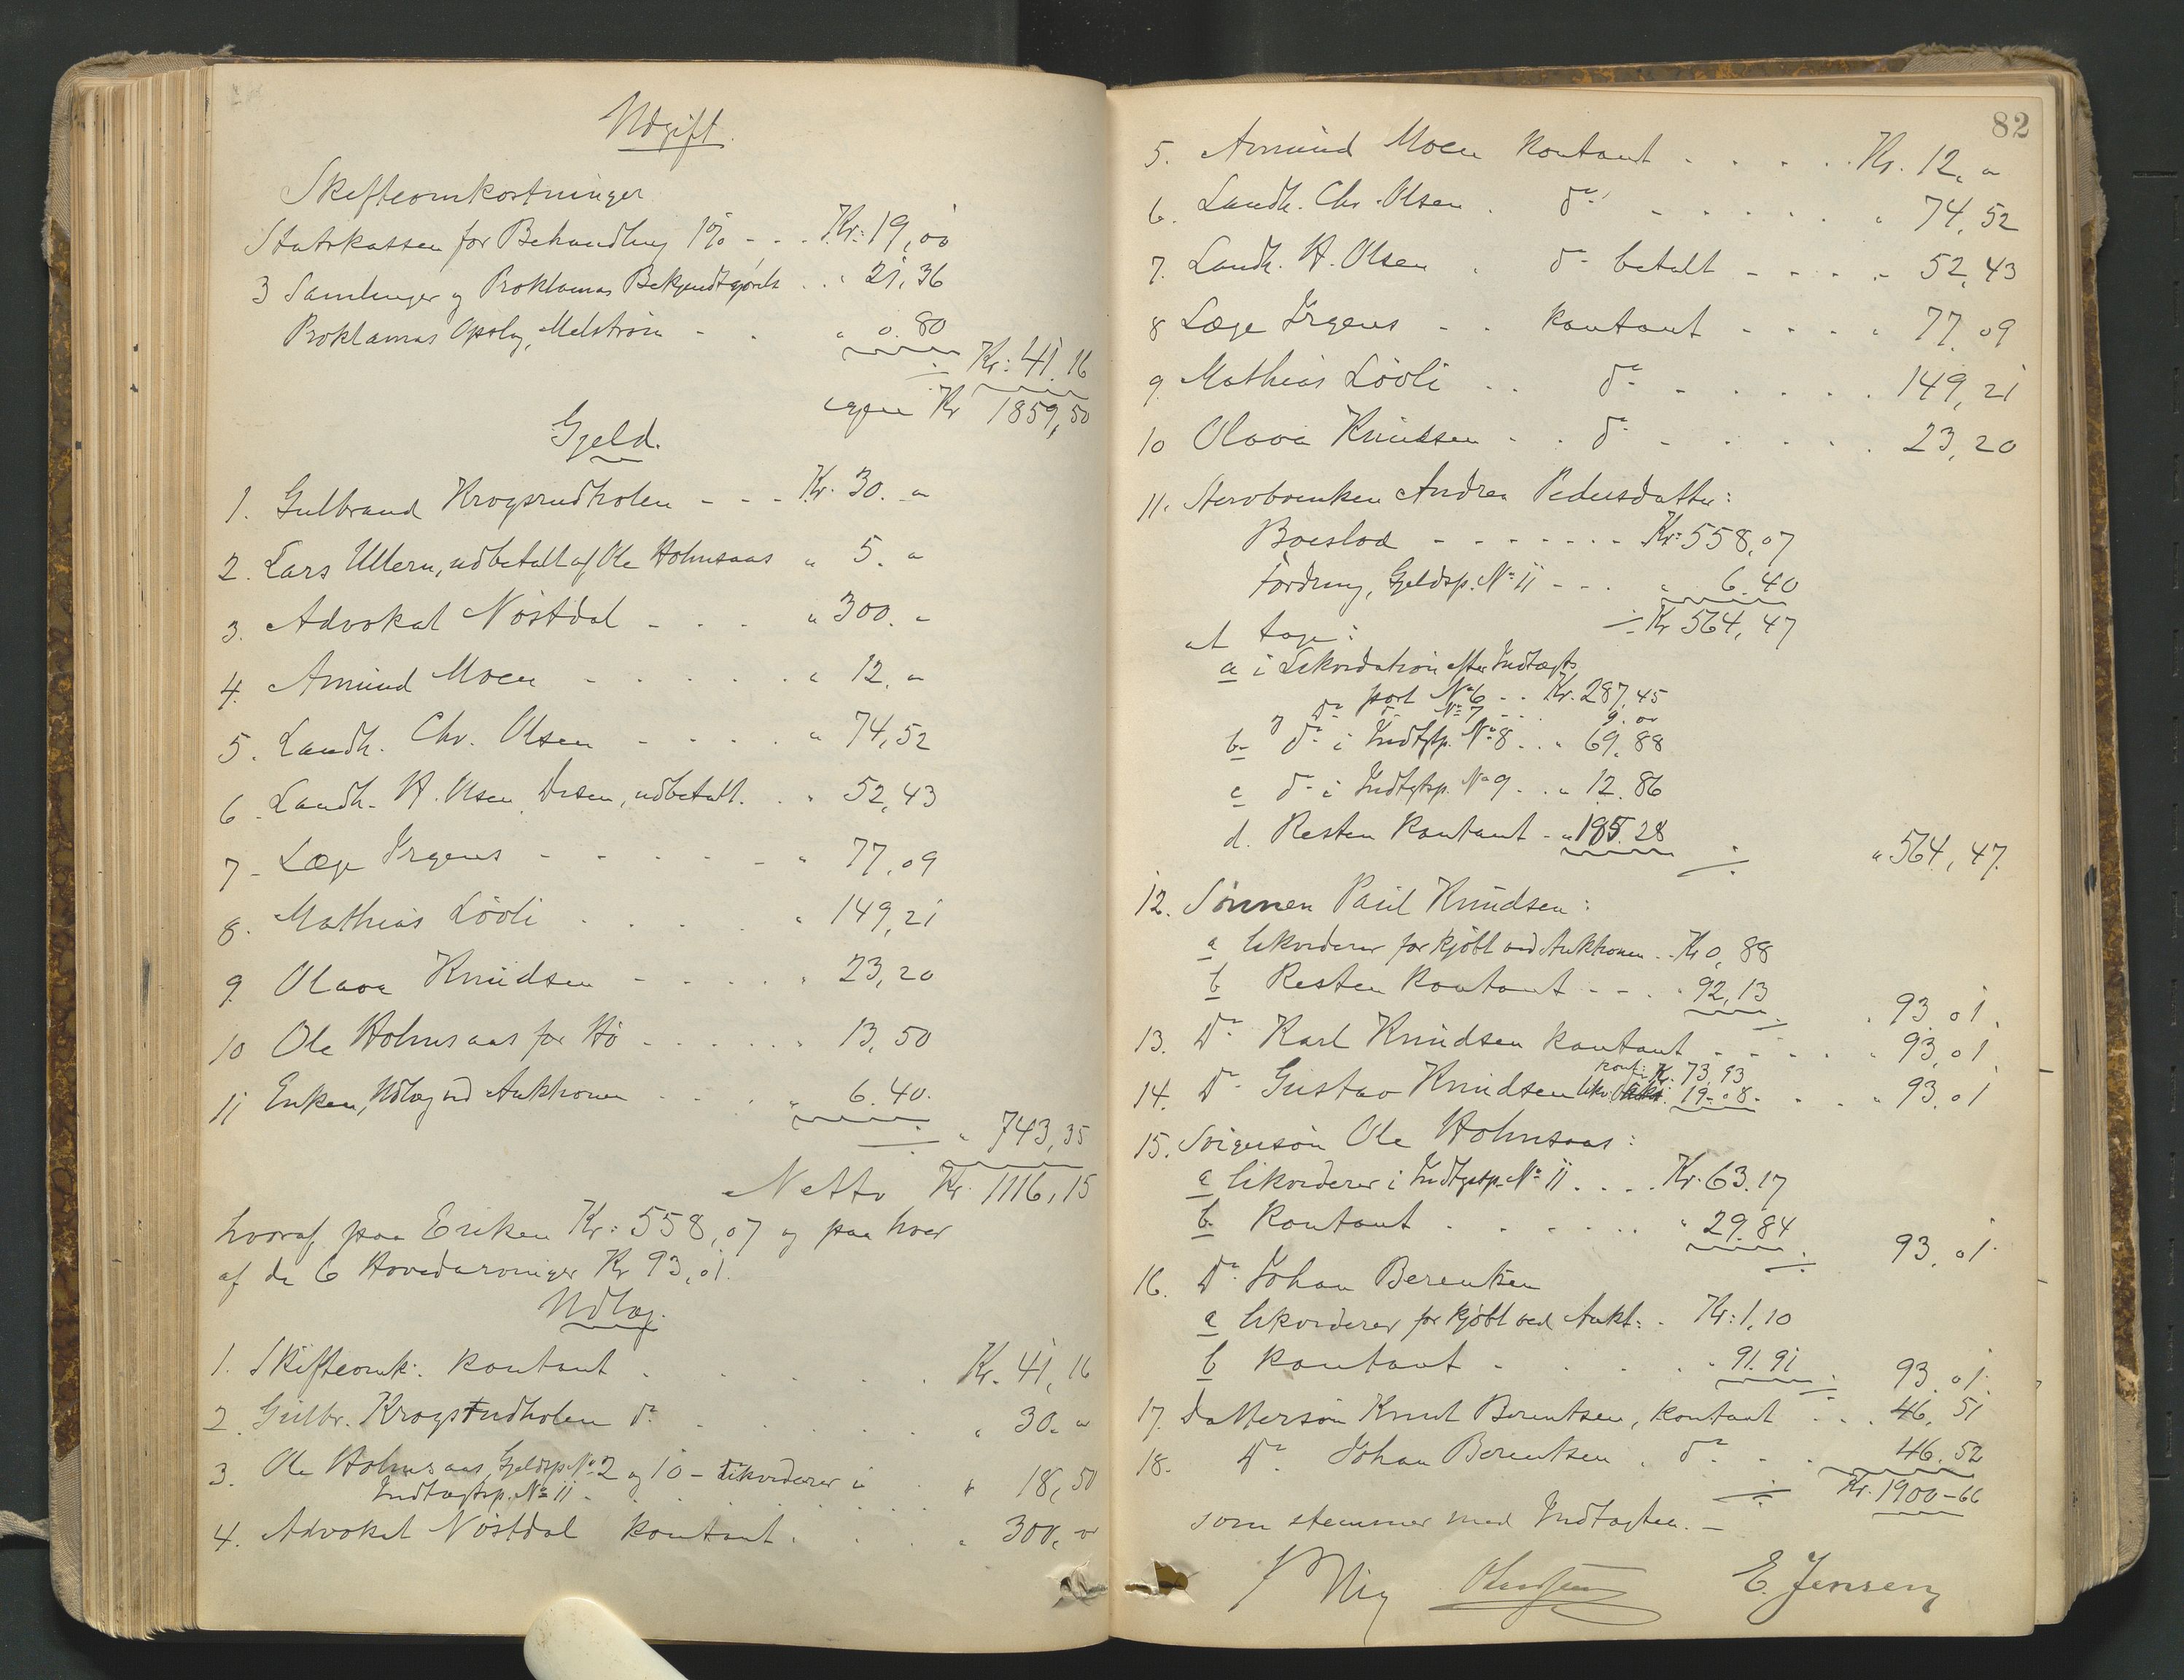 Udgift.
Skifteomkostninger
Statskassen for Behandling 1% - - - Kr: 19,00
3 Samlinger og Proklamas Bekjendtgjörelse . . " 21,36
Proklamas Opslag, - . " 0.80
Kr: 41.16
igjen Kr 1859,50
Gjeld.
1. Gulbrand Krogsrudholen - - - Kr. 30. "
2. Lars Ullern, udbetalt af Ole Holmsaas " 5. "
3. Advokat Nöstdal - . . " 300. "
4. Amund Moen - . . . . " 12. "
5. Landh. Chr. Olsen - . . . " 74,52
6. Landh. H. Olsen Disen, udbetalt. . " 52,43
7 - Læge Irgens - - - - - " 77,09
8. Mathias Lövli . . . . " 149,21
9. Olava Knudsen - . . . . 23,20
10 Ole Holmsaas for Hö . . . . . " 13,50
11 Enken, Udlæg ved Auktionen . . . " 6.40.
" 743,35
Netto Kr. 1116,15
hvoraf paa Enken Kr: 558,07 og paa hver
af de 6 Hovedarvinger Kr 93,01.
Udlæg.
1. Skifteomk: kontant . . . . . Kr. 41,16
2. Gulbr. Krogsrudholen do . . . . " 30. "
3. Ole Holmsaas, Gjeldsp. No 2 og 10 - likviderer i " 18,50
Indtægtsp. No 11 - . . . . . .
4. Advokat Nöstdal kontant . . . " 300, "
82
5. Amund Moen kontant . . . . Kr. 12, "
6. Landh. Chr. Olsen . do - . . . . . " 74,52
7. Landh. H. Olsen . do betalt - - - - 52,43
8 Læge Irgens - . kontant - . . . " 77.09
9. Mathias Lövli . . do - . . . . . 149,21
10 Olava Knudsen - . do - . . . . 23,20
11. Stervboenken Andrea Pedersdatter:
Boeslod - - - - - - - Kr: 558,07
Fordring, Gjeldsp. No 11 - - . " 6.40
Kr 564,47
at tage:
a i Likvidation efter Indtægts
post No 6 . . Kr. 287,45
og do do No 7 . . . 9.00
b. do i Indtgtp. No 8 . . " 69.88
c do i Indtgtsp. No 9 . . " 12.86
d. Resten kontant - " 185.28
" 564,47.
12. Sönnen Paul Knudsen:
a likviderer for kjöbt ved Auktionen . . Kr 0,88
b Resten kontant - - . " 92,13
" 93.01.
13. Do Karl Knudsen kontant . . . . " 93,01
kont: Kr. 73,93
14. Do Gustav Knudsen likv: 19.08 - . . " 93.01
15. Svigersön Ole Holmsaas:
a likviderer i Indtgtsp. No 11 . . . . Kr. 63.17
b. kontant . . . . . . " 29.84
93.01.
16. Do Johan Berentsen
a likviderer for kjöbt ved Aukt: . Kr: 1,10
b kontant - . . . . " 91.91
93.01.
17. Dattersön Knut Berentsen, kontant . . . 46,51
18. Do Johan Berentsen . do . . 46.52
Kr. 1900-66
som stemmer med Indtægten. -
E. Jensen